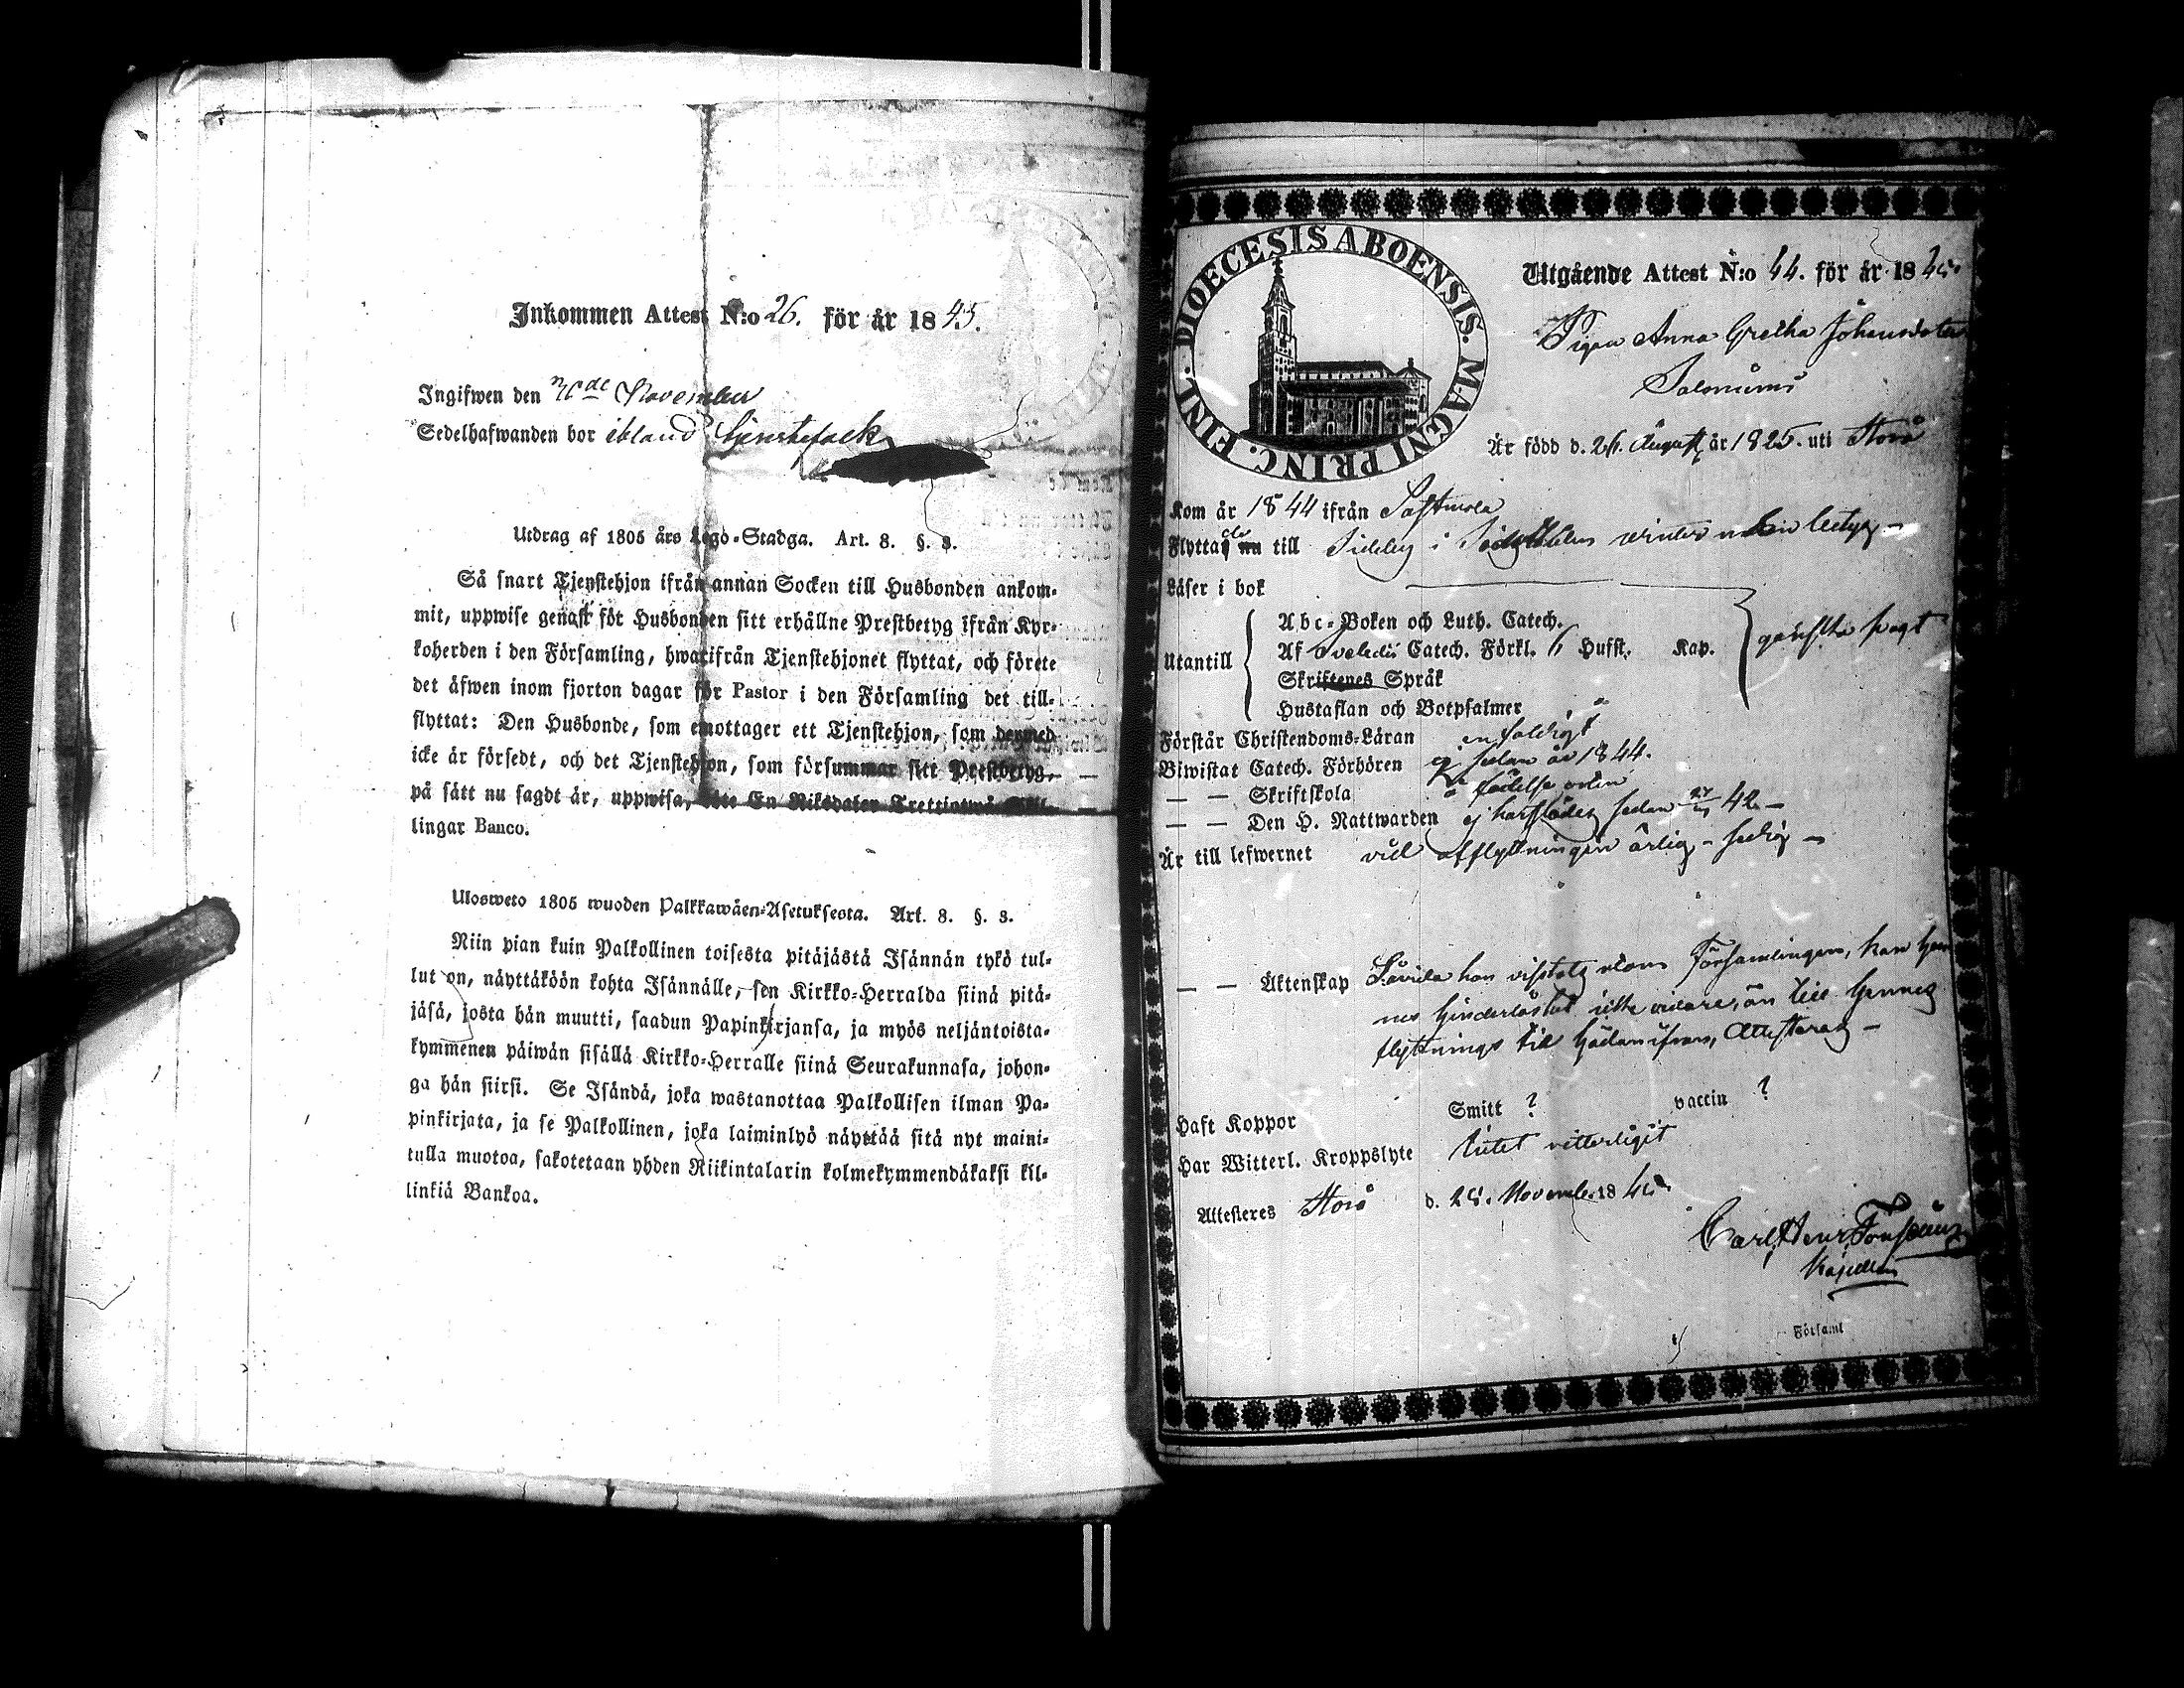 Inkommen Attest N:o 26. för år 1845.
Ingifwen den November
Sedelhafwanden bor ibland tjenstefolk
Utdrag af 1805 års Lego-Stadga. Art. 8. §. 3.
Så snart Tjenstehjon ifrån annan Socken till Husbonden ankom-
mit, uppwise genast för Husbonden sitt erhållne Prestbetyg ifrån Kyr-
koherden i den Församling, hwarifrån Tjenstehjonet flyttat, och förete
det äfwen inom fjorton dagar för Pastor i den Församling det till-
flyttat: Den Husbonde, som emottager ett Tjenstehjon, som dermed
icke är försedt, och det Tjenstehjon, som försummar sitt Prestbetyg,
på sätt nu sagdt är, uppwisa, böte En Riksdaler Trettiotwå Skil-
lingar Banco.
Ulosweto 1805 wuoden Palkkawäen-Asetuksesta. Art. 8. §. 3.
Niin pian kuin Palkollinen toisesta pitäjästä Isännän tykö tul-
lut on, näyttäköön kohta Isännälle, sen Kirkko-Herralda siinä pitä-
jäsä, josta hän muutti, saadun Papinkirjansa, ja myös neljäntoista-
kymmenen päiwän sisällä Kirkko-Herralle siinä Seurakunnasa, johon-
ga hän siirsi. Se Isändä, joka wastanottaa Palkollisen ilman Pa-
pinkirjata, ja se Palkollinen, joka laiminlyö näyttää sitä nyt maini-
tulla muotoa, sakotetaan yhden Riikintalarin kolmekymmendäkaksi kil-
linkiä Bankoa.
DIOECESIS ABOENSIS. MAGNI PRINC. FINL.
Utgående Attest N:o 44. för år 1845.
Pigan Anna Gretha Johansdotter
Är född d. 26. August år 1825. uti Storå
Kom år 1844 ifrån Sastmola
Flyttade till Sideby i winter utan betyg
Läser i bok
Utantill
Abc-Boken och Luth. Catech.
Af Svebelii Catech. Förkl. 6 Hufst. Kap.
ganska swagt
Skriftenes Språk
Hustaflan och Botpsalmer
Förstår Christendoms-Läran enfaldigt
Biwistat Catech. Förhören ej sedan år 1844.
— — Skriftskola i födelse orten
— — Den H. Nattwarden ej härstädes sedan 42
Är till lefwernet vid afflyttningen ärlig - sedig
— — Äktenskap Såvida hon vistats utom Församlingen, kan hen-
nes hinderlöshet icke vidare, än till hennes
flyttnings tid härifrån, Attesteras
Haft Koppor Smitt ? vaccin ?
Har Witterl. Kroppslyte Intet vitterligit
Attesteres Storå d. 28. November 1845
Carl Henr
Kapellan
Församl